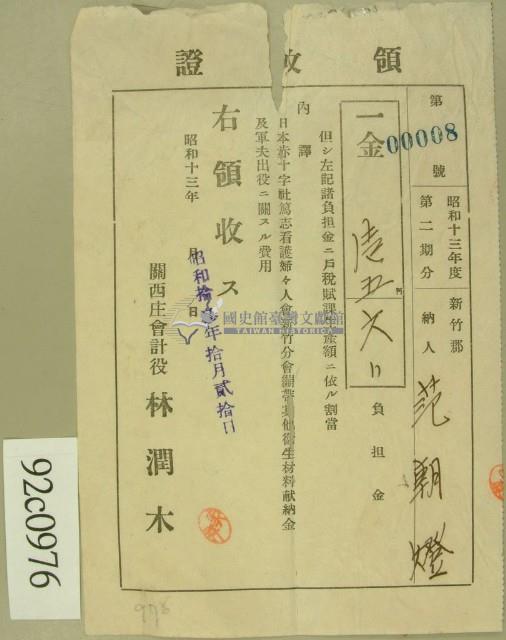 領收證
第00008號
昭和十三年度 新竹郡
第二期分 納人 范朝燈
一金
負担金
但シ左記諸負担金ニ戶稅賦課資產額ニ依ル割當
內譯
日本赤十字社篤志看護婦人會新竹分會繃帶其他衛生材料献納金
及軍夫出役ニ關スル費用
右領收ス
昭和十三年 月 日
昭和拾參年拾月貳拾日
關西庄會計役 林潤木
國史館臺灣文獻館
TAIWAN HISTORICA
92c0976
976